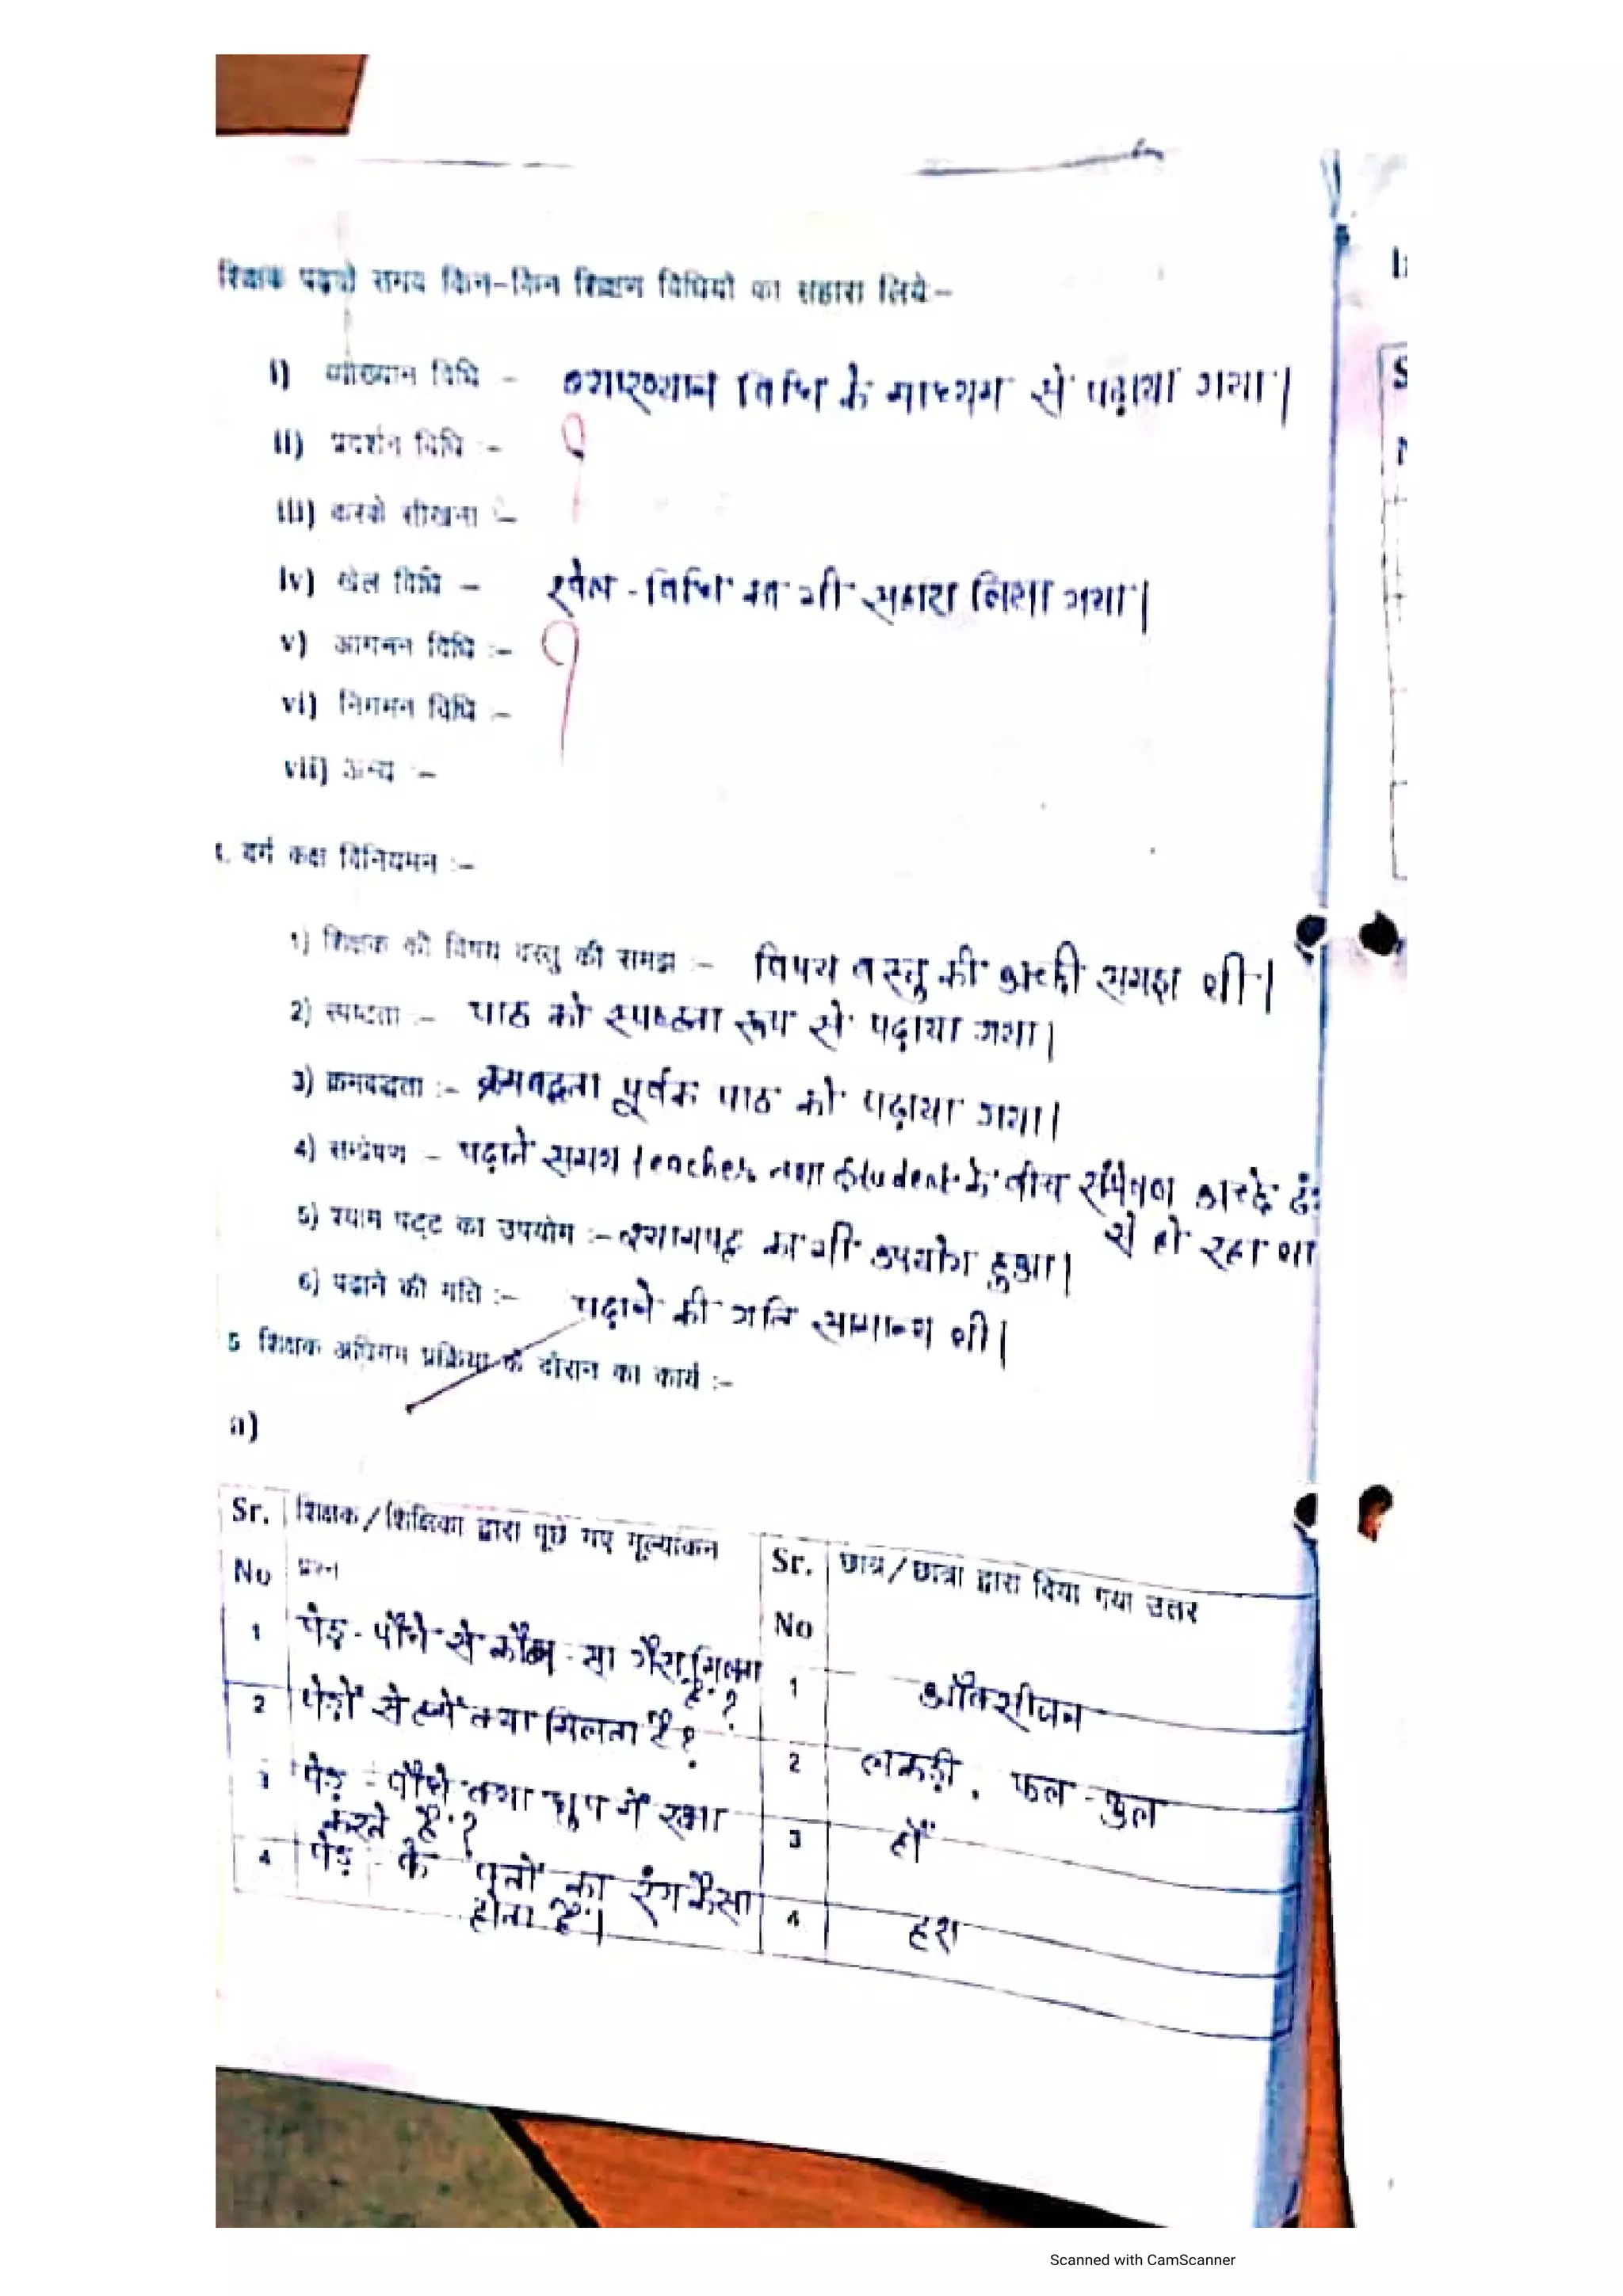 शिक्षक पढ़ाते समय किन-किन शिक्षण विधियों का सहारा लिये:-
i) व्याख्यान विधि - व्याख्यान विधि के माध्यम से पढ़ाया गया।
ii) प्रदर्शन विधि :-
iii) करके सीखना :-
iv) खेल विधि - खेल - विधि का भी सहारा लिया गया।
v) आगमन विधि :-
vi) निगमन विधि :-
vii) अन्य :-
वर्ग कक्ष विनियमन :-
1) शिक्षक की विषय वस्तु की समझ :- विषय वस्तु की अच्छी समझ थी।
2) स्पष्टता :- पाठ को स्पष्टता रूप से पढ़ाया गया।
3) क्रमबद्धता :- क्रमबद्धता पूर्वक पाठ को पढ़ाया गया।
4) सम्प्रेषण - पढ़ाते समय Teacher तथा Student के बीच अच्छे
से हो रहा था
5) श्याम पट्ट का उपयोग :- श्यामपट्ट का भी उपयोग हुआ।
6) पढ़ाने की गति :- पढ़ाने की गति सामान्य थी।
5 शिक्षक अधिगम प्रक्रिया के दौरान का कार्य :-
a)
Sr. शिक्षक/शिक्षिका द्वारा पूछे गए मूल्यांकन
No प्रश्न
Sr. छात्र/छात्रा द्वारा दिया गया उत्तर
No
1 पेड़-पौधे से कौन-सा गैस मिलता
है?
1 ऑक्सीजन
2 पेड़ों से हमें क्या मिलता है?
2 लकड़ी, फल-फुल
3 पेड़-पौधे तथा धुप में रक्षा
करते हैं?
3 हाँ
4 पेड़ के पत्तों का रंग कैसा
होता है।
4 हरा
Scanned with CamScanner